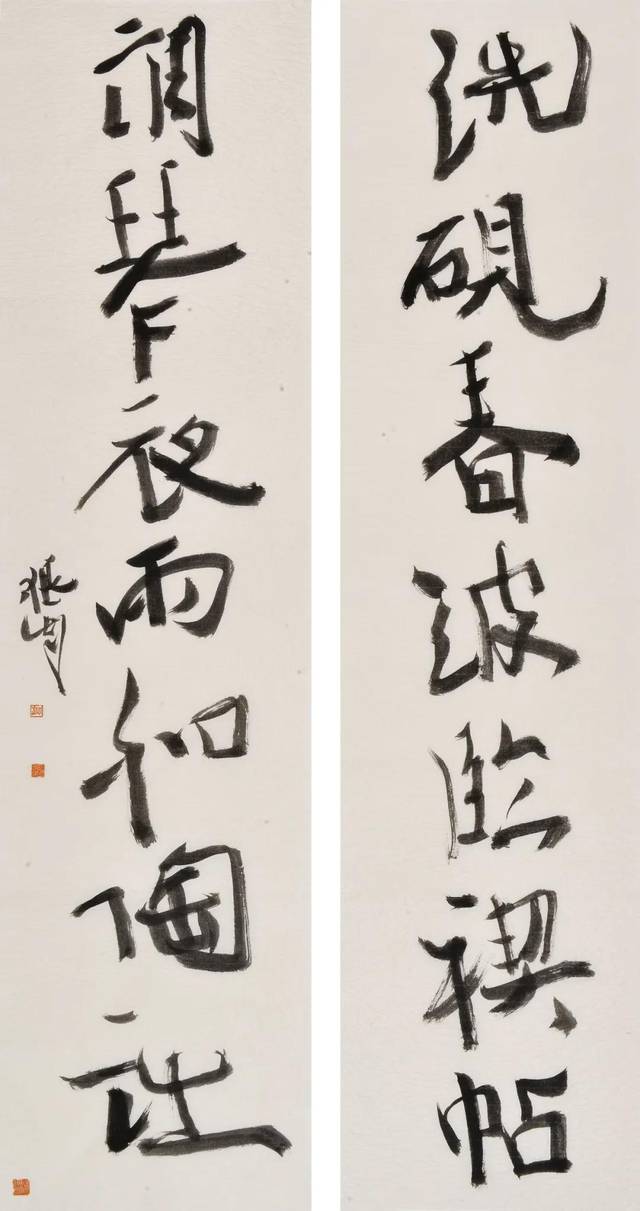 洗硯春波臨禊帖
調琴夜雨和陶詩